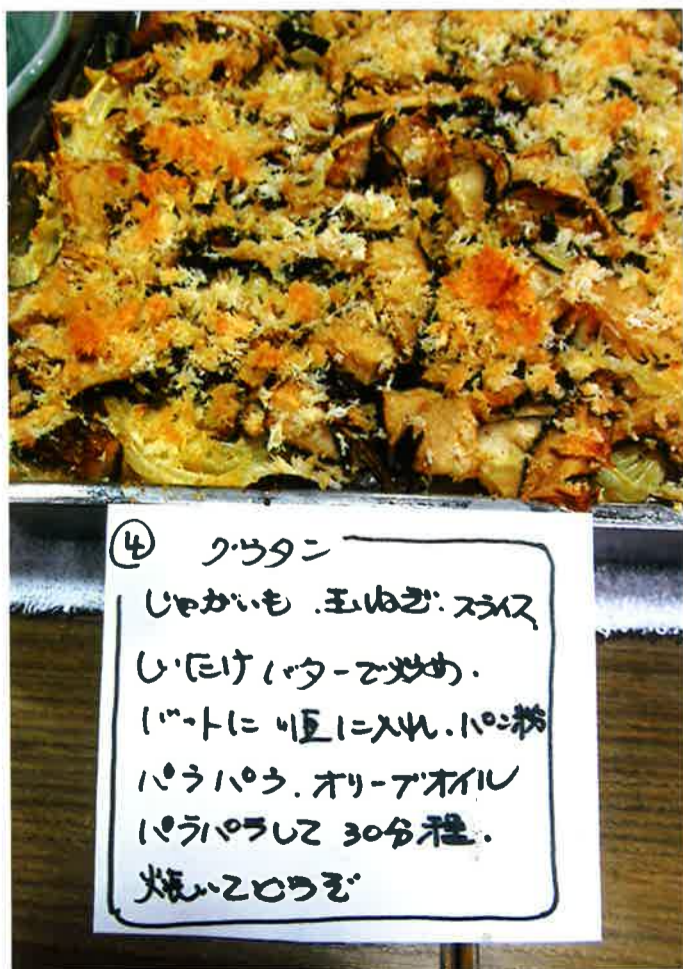 ④ グラタン
じゃがいも.玉ねぎ.スライス
しいたけバターで炒め.
バットに順に入れ.パン粉
パラパラ.オリーブオイル
パラパラして30分程.
焼いてどうぞ